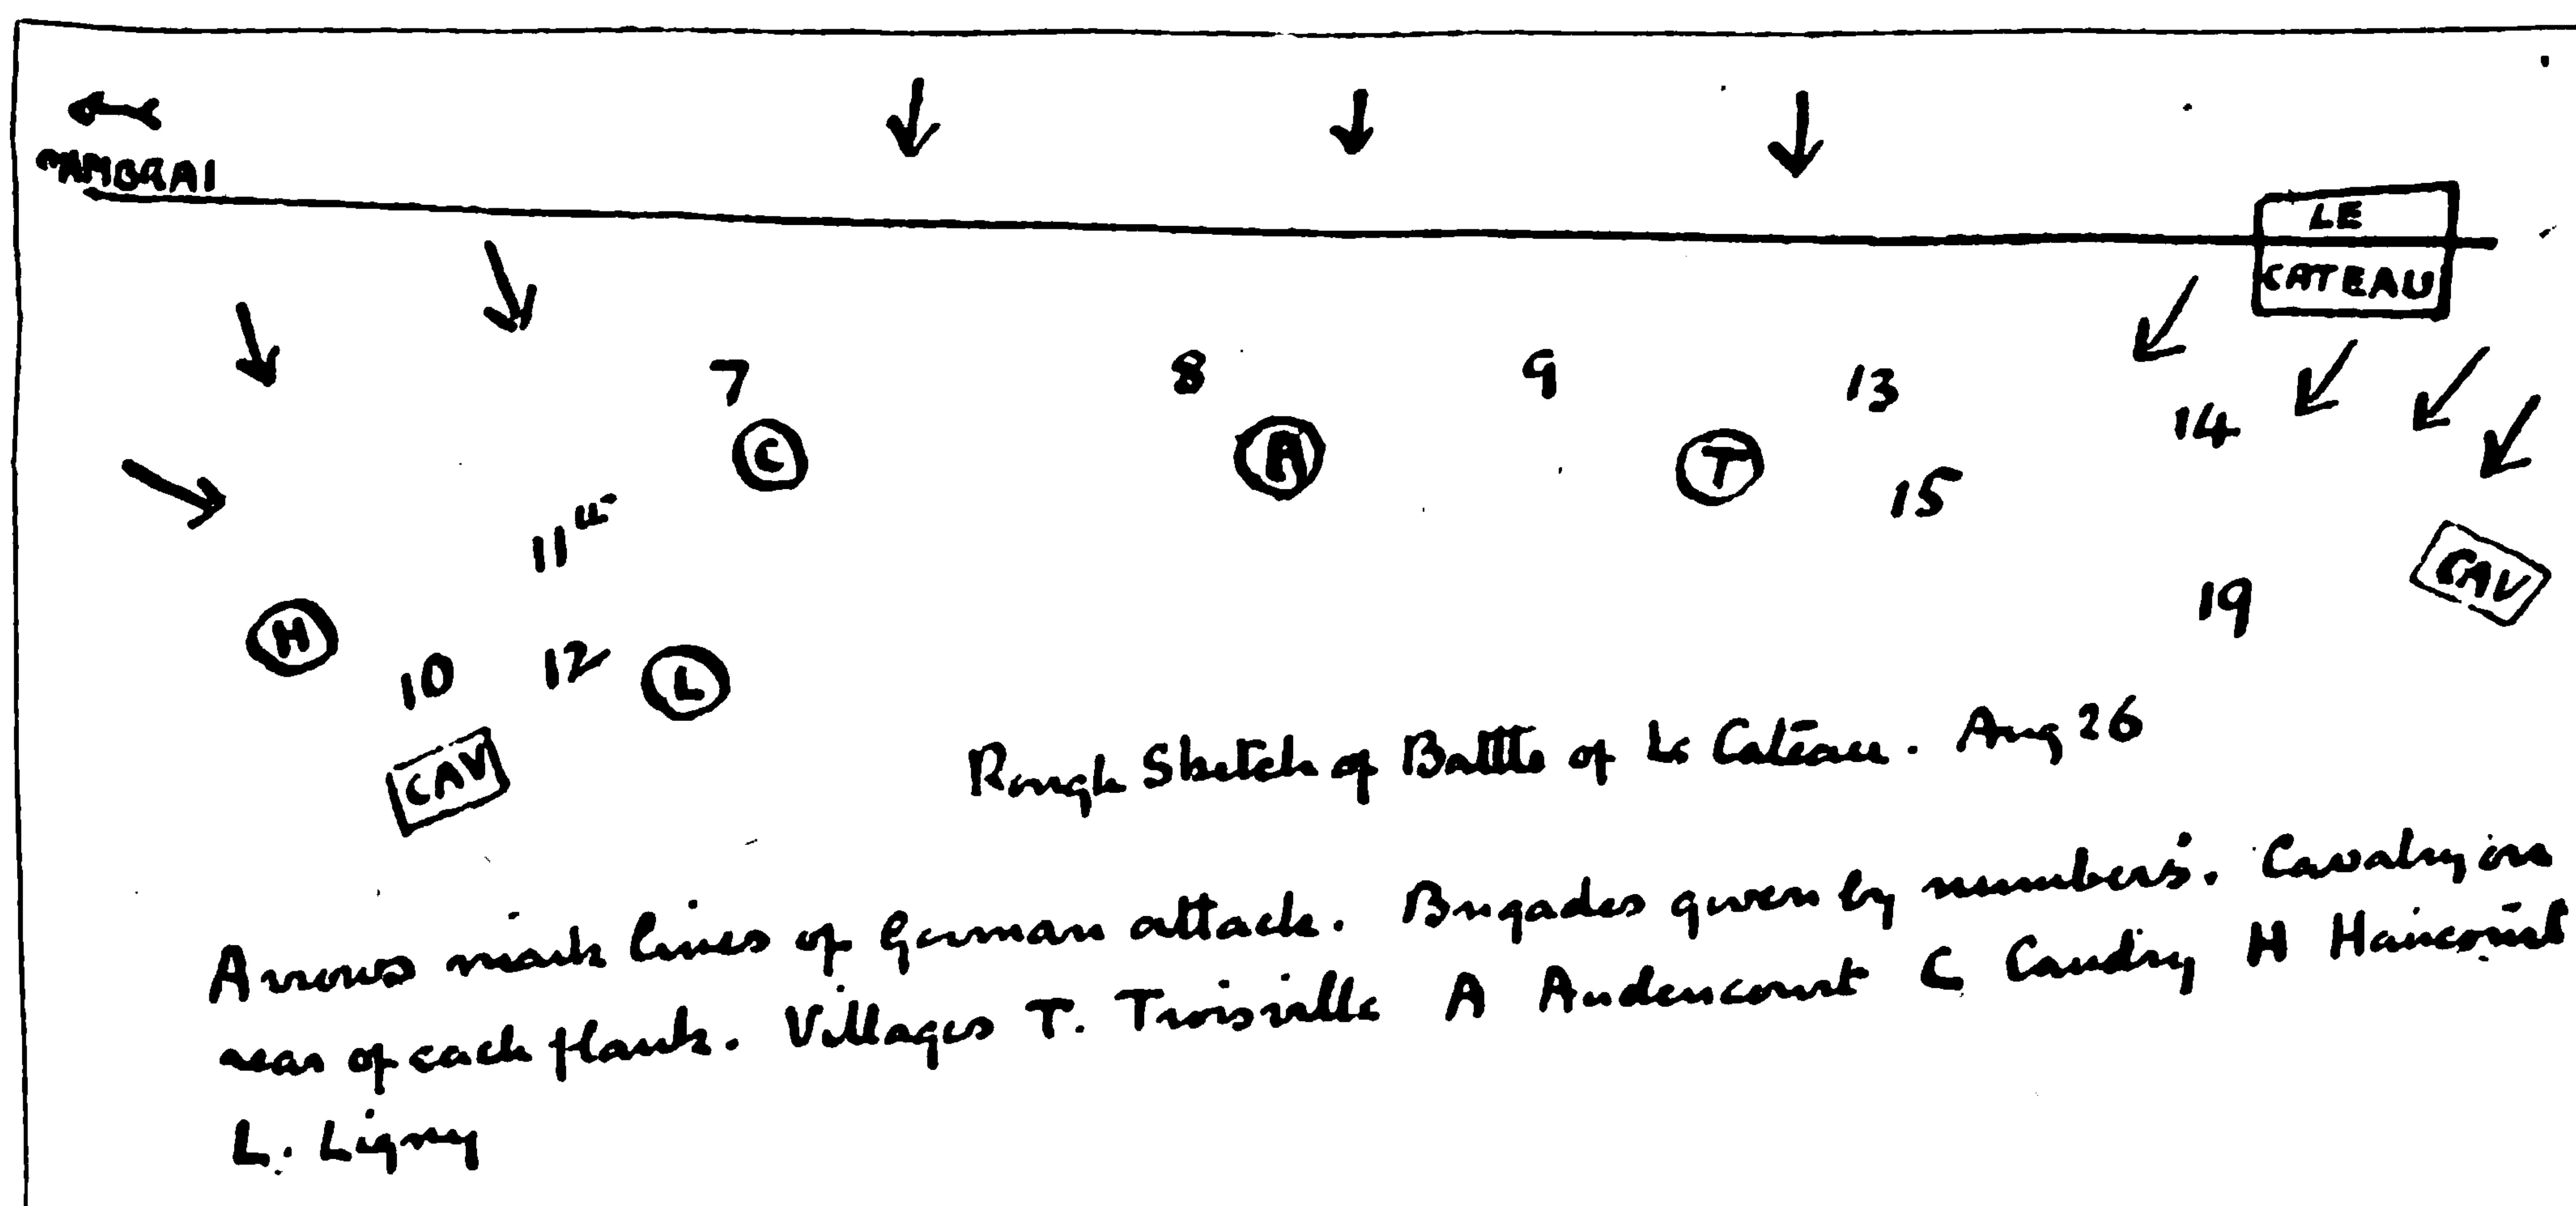 CAMBRAI
LE
CATEAU
7 8 9 13
14
C A T
15
11th
CAV
19
H
10 12 L
CAV
Rough Sketch of Battle of Le Cateau. Aug 26
Arrows mark lines of German attack. Brigades given by numbers. Cavalry in
rear of each flank. Villages T. Troisville A Audencourt C Caudry H Haucourt
L. Ligny